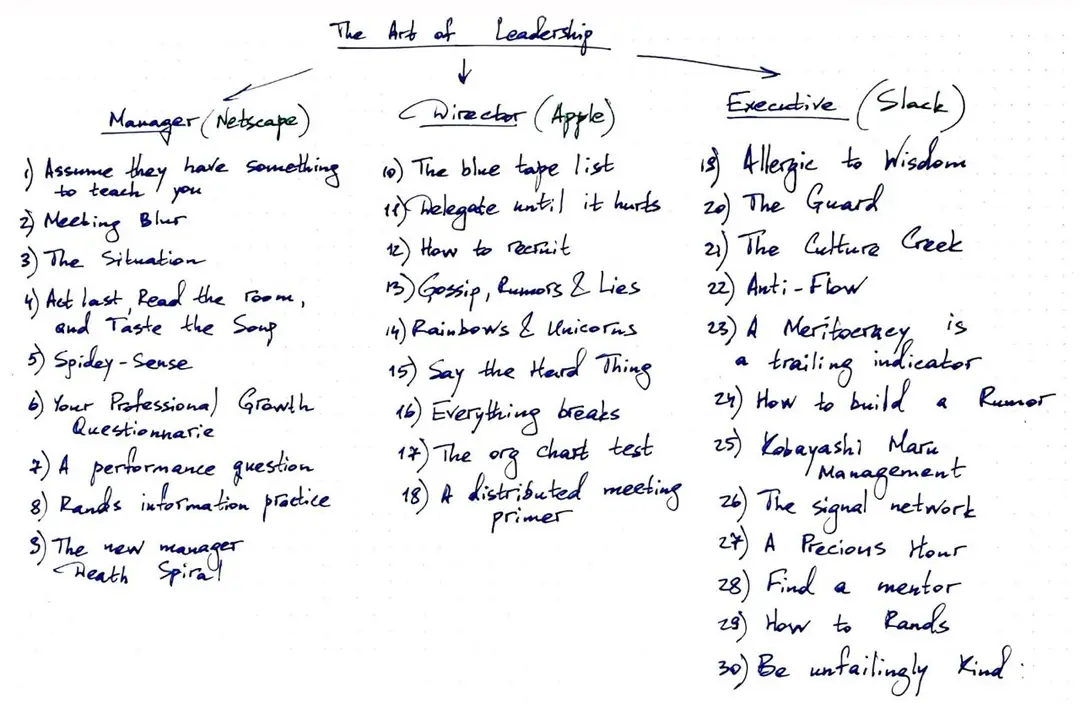 The Art of Leadership
Manager (Netscape)
1) Assume they have something
to teach you
2) Meeting Blur
3) The Situation
4) Act last, Read the room,
and Taste the Soup
5) Spidey-Sense
6) Your Professional Growth
Questionnarie
7) A performance question
8) Rands information practice
9) The new manager
Death Spiral
Director (Apple)
10) The blue tape list
11) Delegate until it hurts
12) How to recruit
13) Gossip, Rumors & Lies
14) Rainbows & Unicorns
15) Say the Hard Thing
16) Everything breaks
17) The org chart test
18) A distributed meeting
primer
Executive (Slack)
19) Allergic to Wisdom
20) The Guard
21) The Culture Creek
22) Anti-Flow
23) A Meritocracy is
a trailing indicator
24) How to build a Rumor
25) Kobayashi Maru
Management
26) The signal network
27) A Precious Hour
28) Find a mentor
29) How to Rands
30) Be unfailingly Kind :